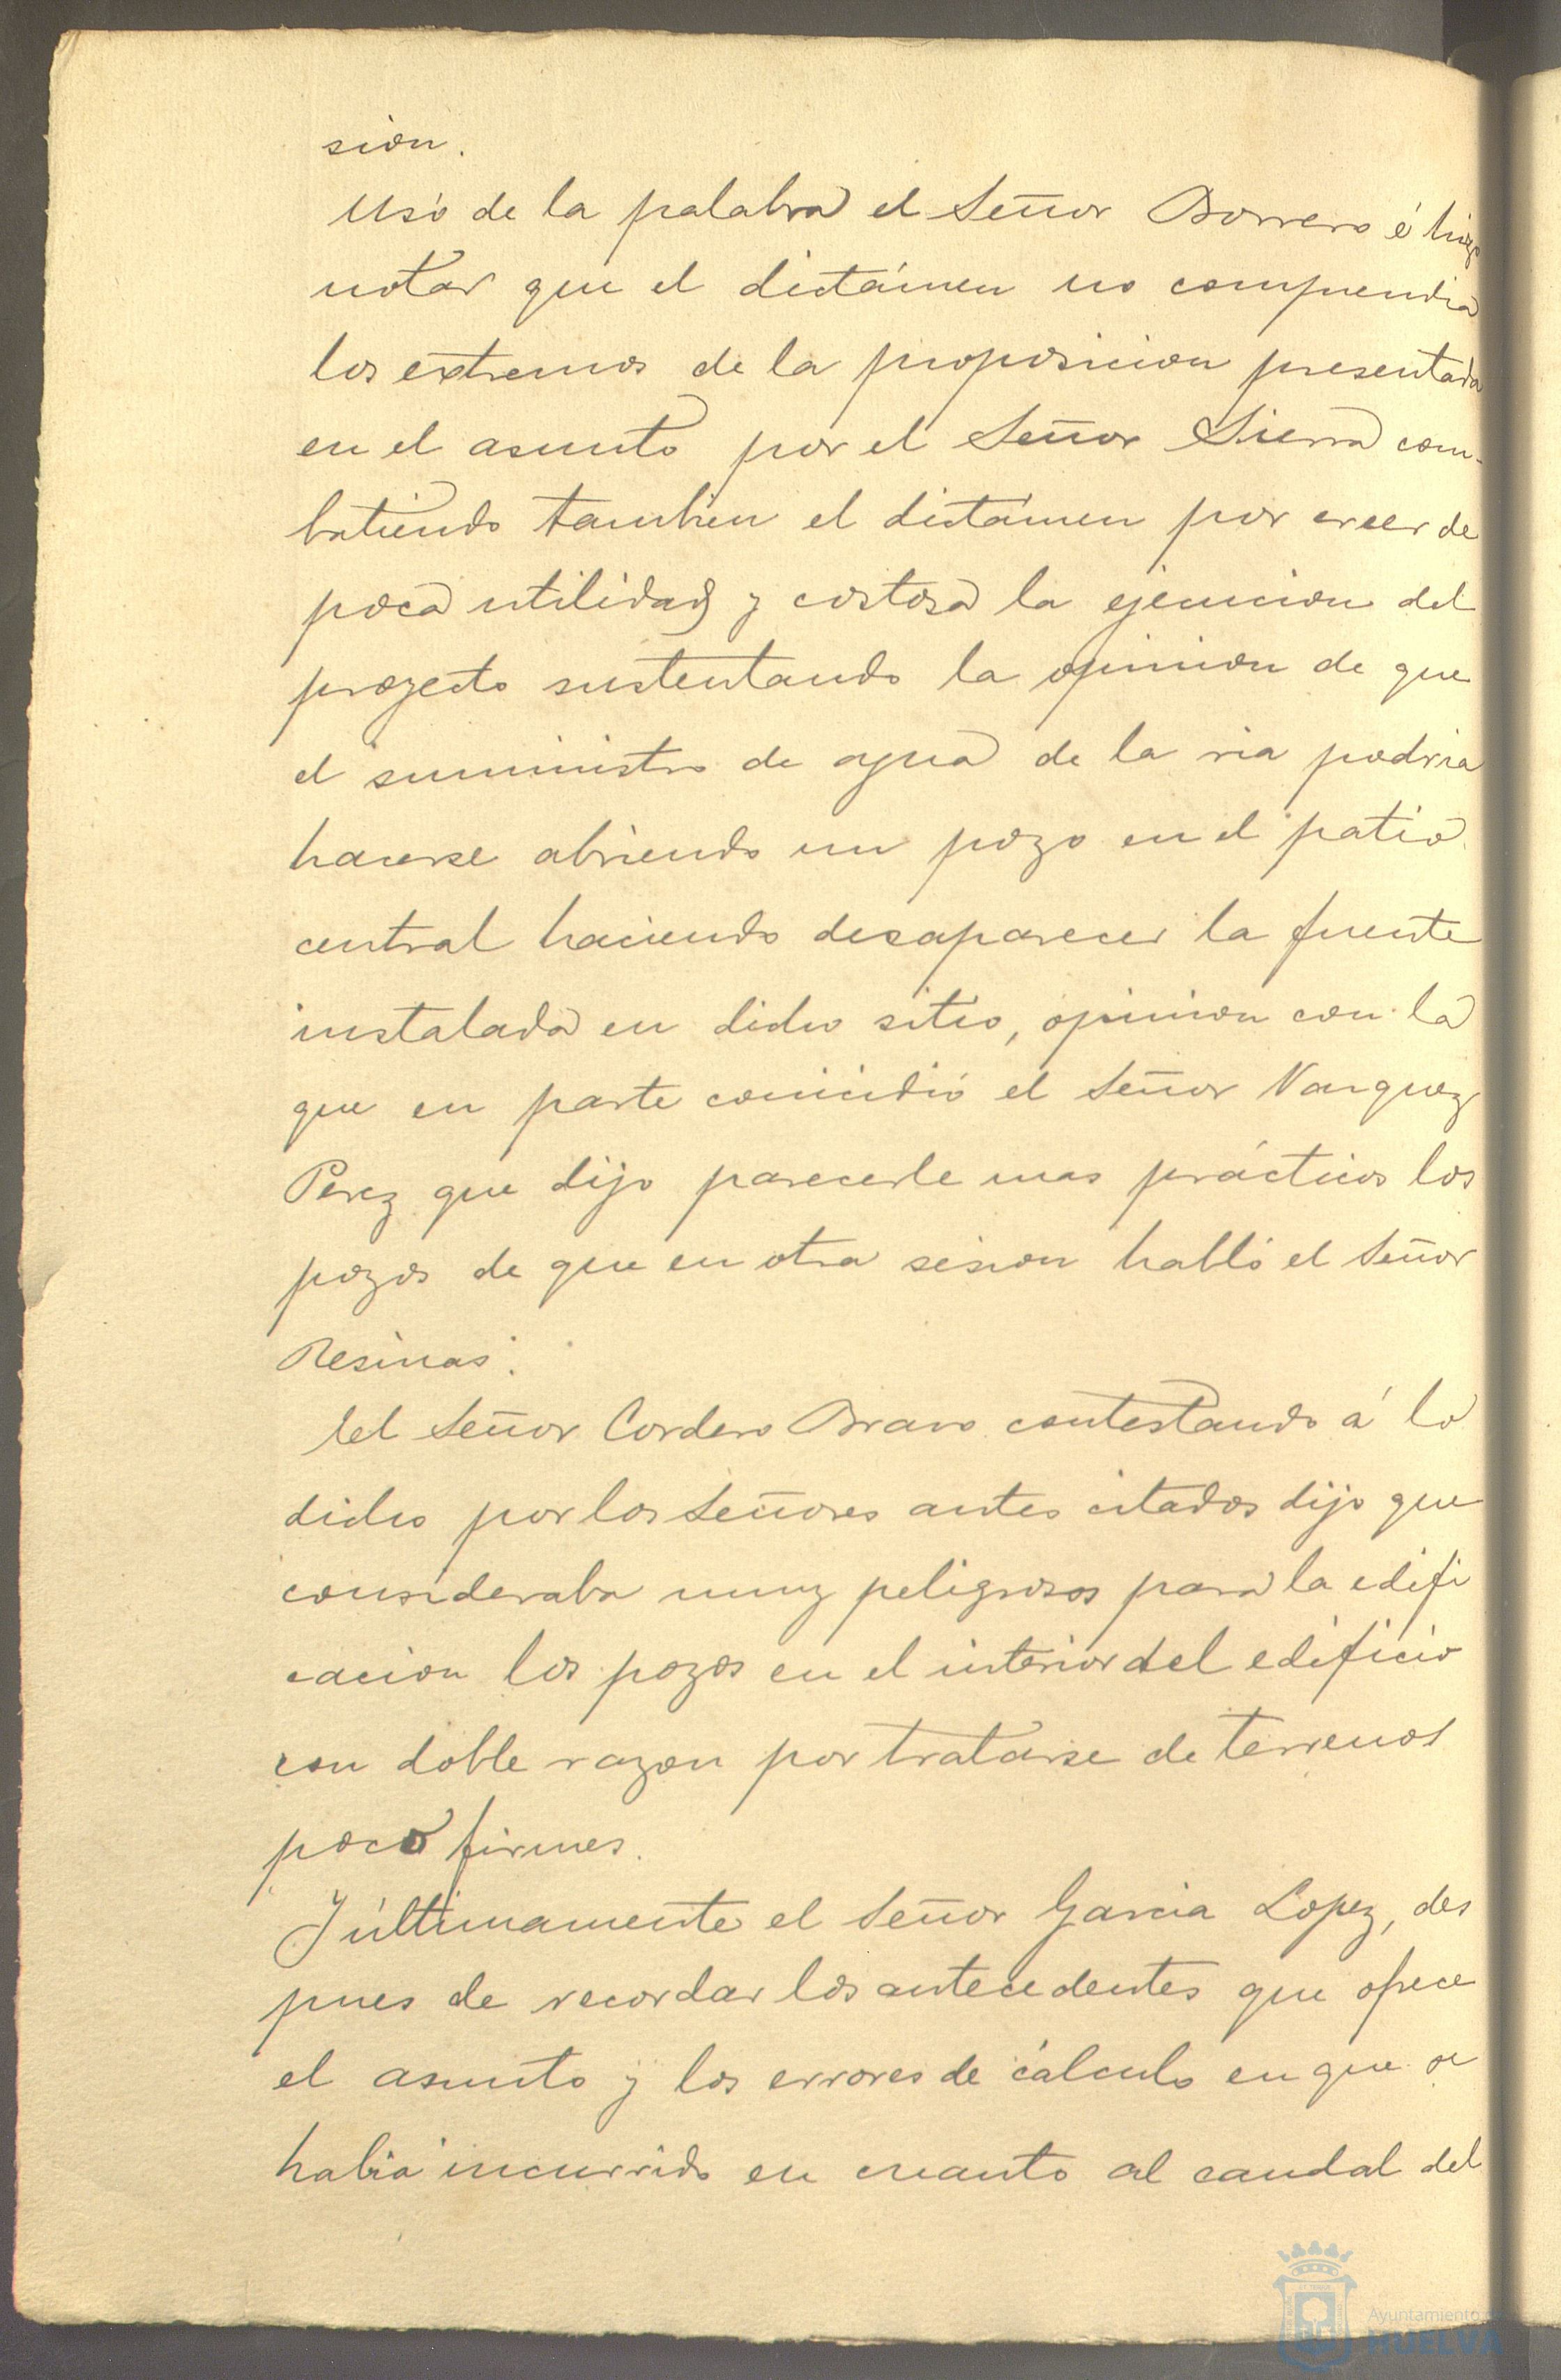 sion.
Usó de la palabra el Señor Borrero é hizo
notar que el dictámen no comprendia
los extremos de la proposicion presentada
en el asunto por el Señor Sierra com-
batiendo tambien el dictámen por creer de
poca utilidad y costosa la ejecucion del
proyecto sustentando la opinion de que
el suministro de agua de la ria podria
hacerse abriendo un pozo en el patio
central haciendo desaparecer la fuente
instalada en dicho sitio, opinion con la
que en parte coincidió el Señor Vazquez
Perez que dijo parecerle mas prácticos los
pozos de que en otra sesion habló el Señor
Resinas.
El Señor Cordero Bravo contestando á lo
dicho por los Señores antes citados dijo que
consideraba muy peligrosos para la edifi
cacion los pozos en el interior del edificio
con doble razon por tratarse de terrenos
poco firmes.
Y últimamente el Señor Garcia Lopez, des
pues de recordar los antecedentes que ofrece
el asunto y los errores de cálculo en que se
habia incurrido en cuanto al caudal del
Ayuntamiento
HUELVA